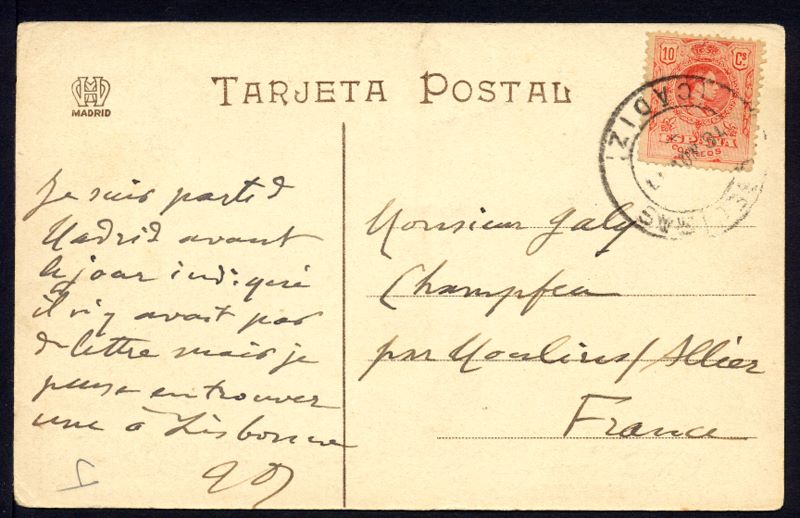 MADRID
TARJETA POSTAL
10 Cs
CORREOS
CADIZ
Je suis parti d
Madrid avant
le jour indiqué
il n'y avait pas
de lettre mais je
pense en trouver
une à Lisbonne
Monsieur Galy
Champfeu
par Moulins/Allier
France